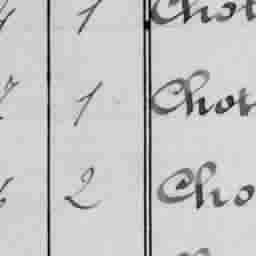 1 Chot
1 Chot
2 Cho